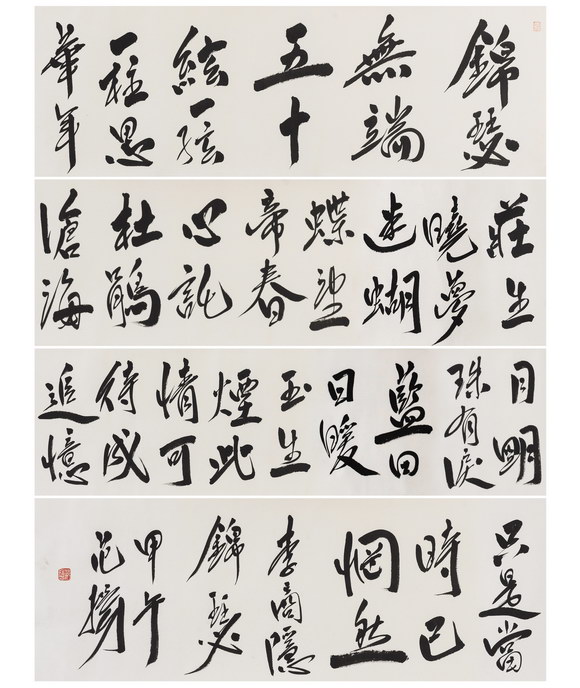 錦瑟
無端
五十
絃一絃
一柱思
華年
莊生
曉夢
迷蝴
蝶望
帝春
心託
杜鵑
滄海
月明
珠有淚
藍田
日暖
玉生
煙此
情可
待成
追憶
只是當
時已
惘然
李商隱
錦瑟
甲午
范